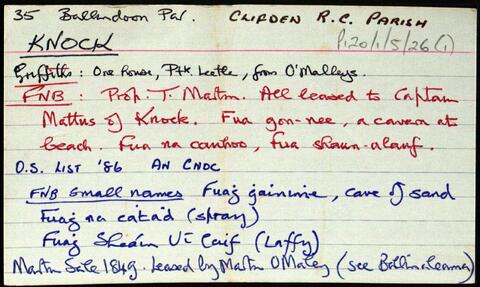 35 Ballindoon Par. CLIFDEN R.C. PARISH
P120/1/5/26(1)
KNOCK
Griffiths: One house, Ptk Leetle, from O'Malleys.
FNB. Prop. T. Martin. All leased to Captain
Mattus of Knock. Fua gon-nee, a cavern at
beach. Fua na canhoo, Fua shaun-alauf.
O.S. LIST '86 AN CNOC
FNB small names Fuaġ gainimhe, cave of sand
Fuaiġ na cátad (spray)
Fuaiġ Sheáin Uí Caif (Laffy)
Martin Sale 1849. Leased by Martin O'Maley (see Ballinaleama)